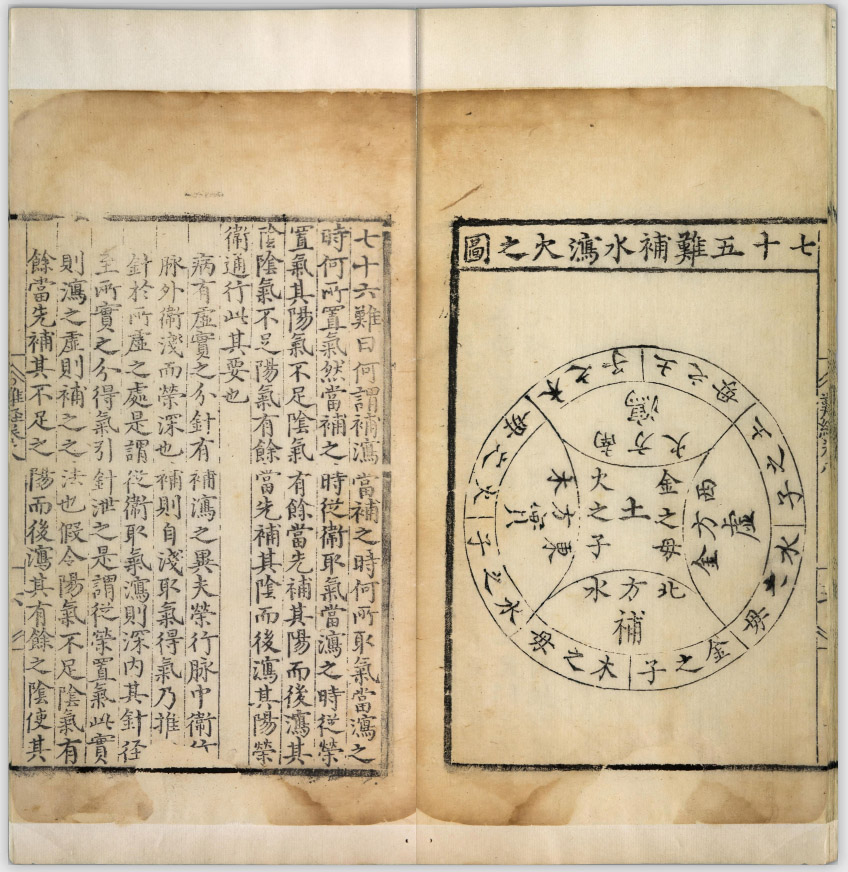 七十五難補水瀉火之圖
土之母
木之子
火之母
水之子
木之母
金之子
水之母
土之子
南方火
瀉
西方金
虛
東方木
實
北方水
補
金之母
土
火之子
七十六難曰何謂補瀉當補之時何所取氣當瀉之
時何所置氣然當補之時從衛取氣當瀉之時從榮
置氣其陽氣不足陰氣有餘當先補其陽而後瀉其
陰陰氣不足陽氣有餘當先補其陰而後瀉其陽榮
衛通行此其要也
病有虛實之分針有補瀉之異夫榮行脉中衛行
脉外衛淺而榮深也補則自淺取氣得氣乃推
針於所虛之處是謂從衛取氣瀉則深内其針徑
至所實之分得氣引針泄之是謂從榮置氣此實
則瀉之虛則補之之法也假令陽氣不足陰氣有
餘當先補其不足之陽而後瀉其有餘之陰使其